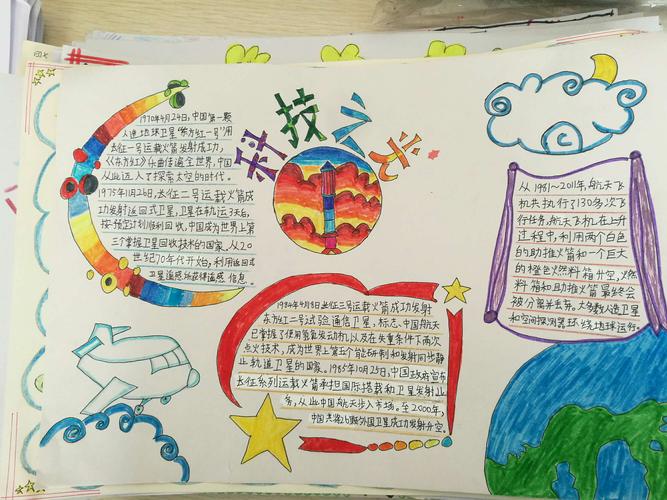 科技之光
1970年4月24日,中国第一颗
人造地球卫星"东方红一号"用
长征一号运载火箭发射成功,
《东方红》乐曲传遍全世界,中国
从此迈入了探索太空的时代。
1975年11月26日,长征二号运载火箭成
功发射返回式卫星,卫星在轨运3天后,
按预定计划顺利回收,中国成为世界上第
三个掌握卫星回收技术的国家。从20
世纪70年代开始,利用返回式
卫星遥感场获得遥感信息。
1984年4月8日长征三号运载火箭成功发射
东方红二号试验通信卫星,标志、中国航天
已掌握了使用氢氧发动机以及在失重条件下两次
点火技术,成为世界上第五个能研制和发射同步静
止轨道卫星的国家。1985年10月25日,中国政府宣布
长征系列运载火箭承担国际搭载和卫星发射业
务,从此中国航天步入市场。至2000年,
中国共将26颗外国卫星成功发射升空。
从1981~2011年,航天飞
机共执行了130多次飞
行任务,航天飞机在上升
过程中,利用两个白色
的助推火箭和一个巨大
的橙色燃料箱升空,燃
料箱和助推火箭最终会
被分离并丢弃。大多数人造卫星
和空间探测器环绕地球运行。